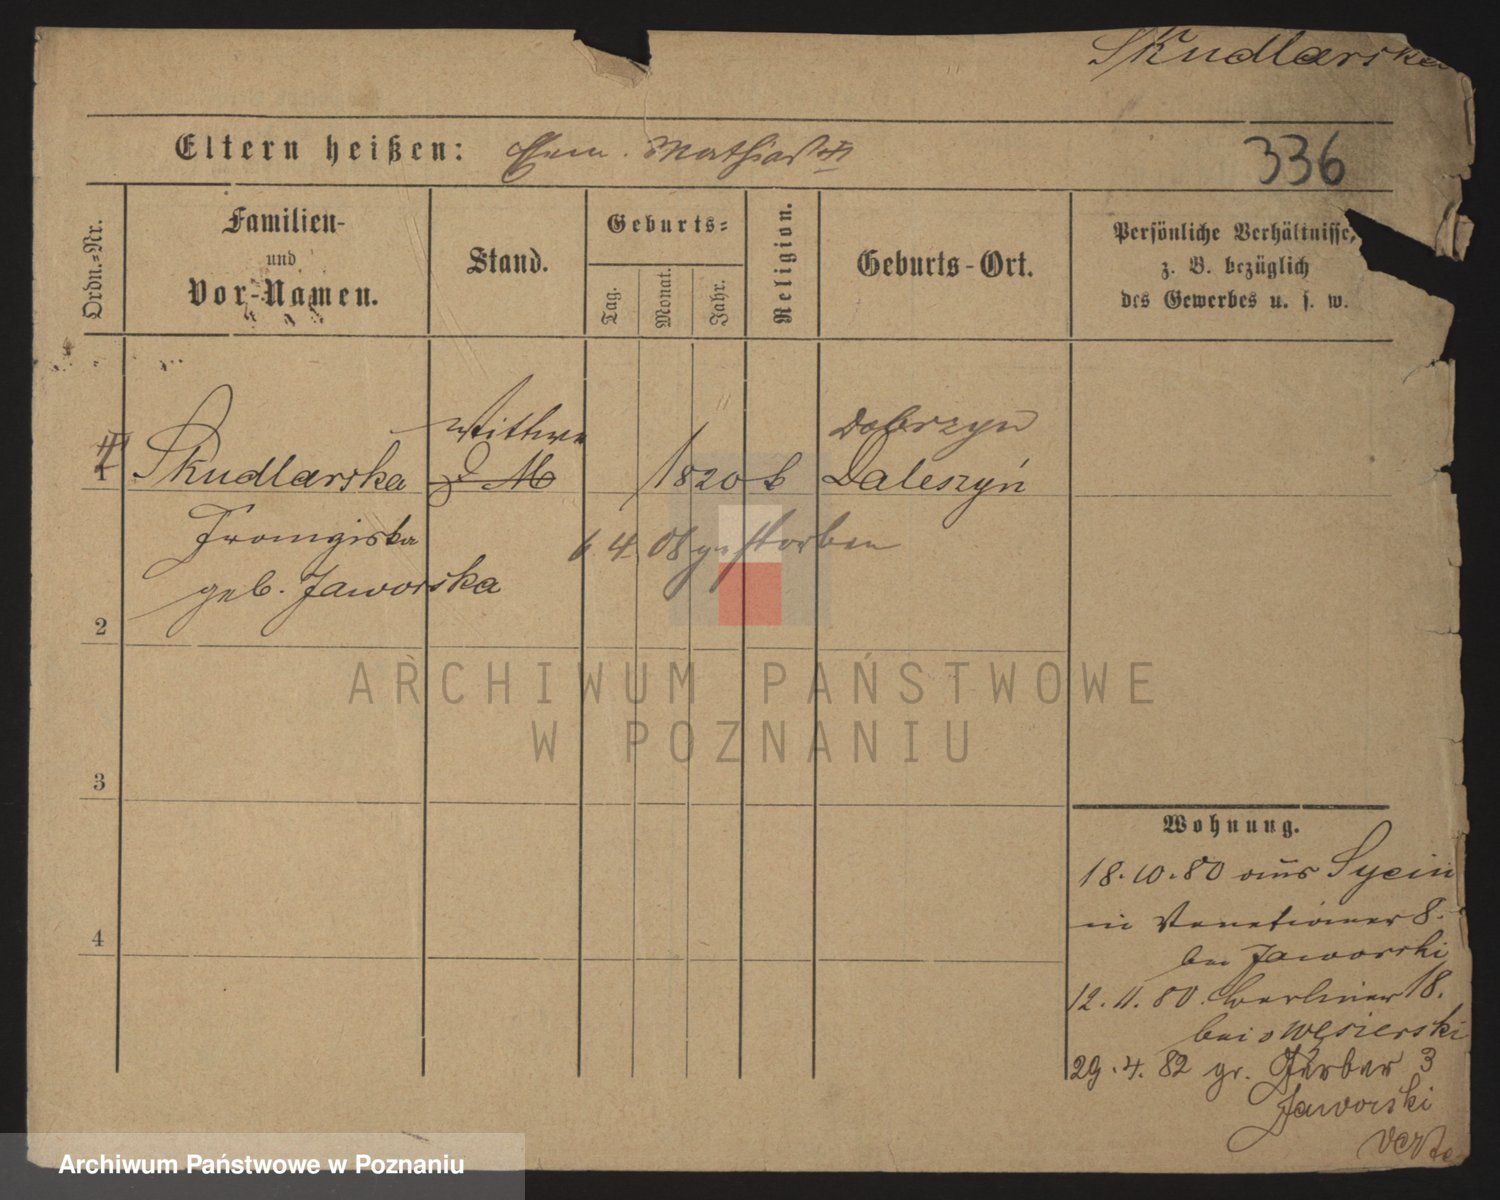 Skudlarska
Eltern heißen: Ehem. Mathias
336
Ordn.-Nr.
Familien-
und
Vor-Namen.
Stand.
Geburts-
Tag.
Monat.
Jahr.
Religion.
Geburts-Ort.
Persönliche Verhältnisse,
z. B. bezüglich
des Gewerbes u. s. w.
Wittwe Dobrzyn
1 Skudlarska D. M 1820 k Daleszyń
Franziska 6 4 08 gestorben
geb. Jaworska
2
3
4
Wohnung.
18.10.80 aus Sycin
in Venetianer 8.
bei Jaworski
12.11.80. Berliner 18.
bei Węsierski
29.4.82 gr. Gerber 3
Jaworski
Verte
ARCHIWUM PAŃSTWOWE
W POZNANIU
Archiwum Państwowe w Poznaniu